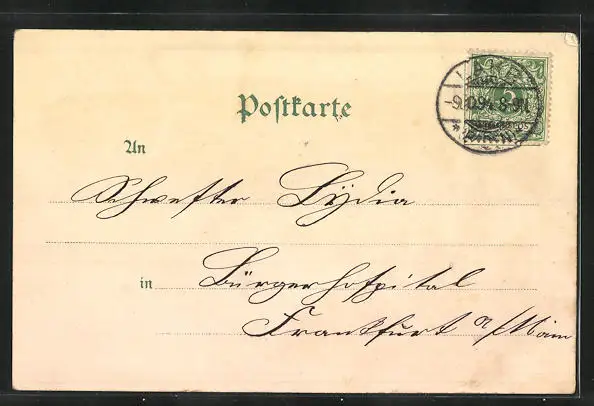 Postkarte
An
Schwester Lydia
in Bürgerhospital
Frankfurt a/Main
5
-9.10.94. 8-9N.